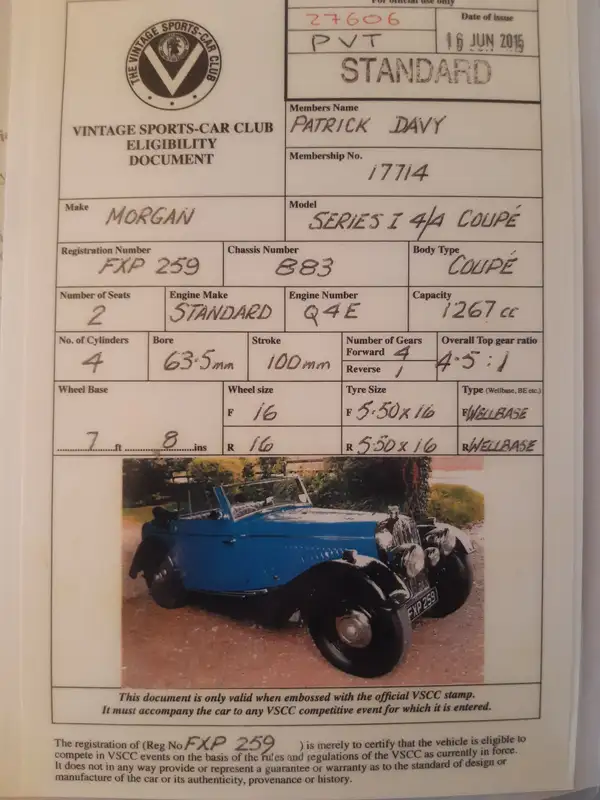 For official use only
27606
Date of issue
PVT
16 JUN 2015
STANDARD
THE VINTAGE SPORTS-CAR CLUB
V
VINTAGE SPORTS-CAR CLUB
ELIGIBILITY
DOCUMENT
Members Name
PATRICK DAVY
Membership No.
17714
Make
MORGAN
Model
SERIES I 4/4 COUPÉ
Registration Number
FXP 259
Chassis Number
883
Body Type
COUPÉ
Number of Seats
2
Engine Make
STANDARD
Engine Number
Q4E
Capacity
1267 cc
No. of Cylinders
4
Bore
63·5mm
Stroke
100mm
Number of Gears
Forward 4
Reverse 1
Overall Top gear ratio
4·5:1
Wheel Base
7 ft 8 ins
Wheel size
F 16
R 16
Tyre Size
F 5·50 x 16
R 5·50 x 16
Type (Wellbase, BE etc.)
F WELLBASE
R WELLBASE
FXP 259
This document is only valid when embossed with the official VSCC stamp.
It must accompany the car to any VSCC competitive event for which it is entered.
The registration of (Reg No FXP 259 ) is merely to certify that the vehicle is eligible to
compete in VSCC events on the basis of the rules and regulations of the VSCC as currently in force.
It does not in any way provide or represent a guarantee or warranty as to the standard of design or
manufacture of the car or its authenticity, provenance or history.